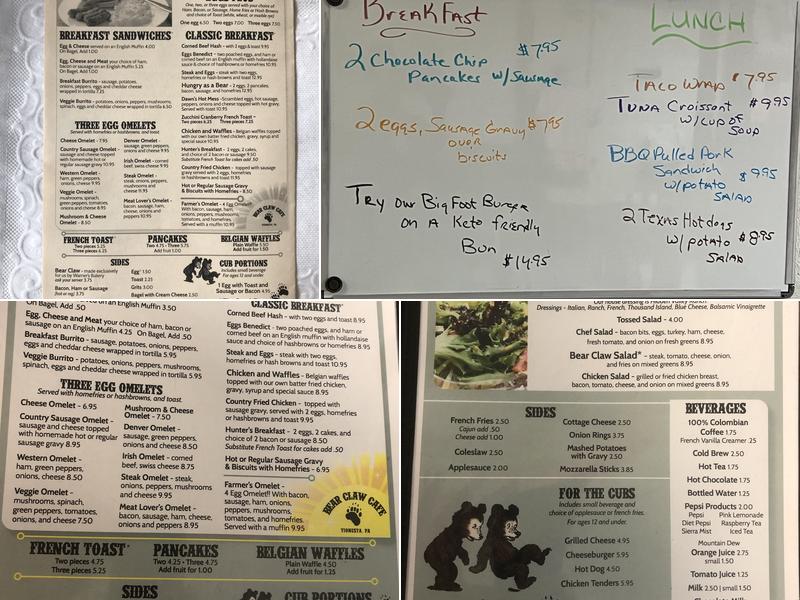 One, two, or three eggs served with your choice of
Ham, Bacon, or Sausage, Home fries or Hash Browns
and choice of Toast (white, wheat, or marble rye)
One egg 6.50 Two eggs 7.00 Three eggs 7.50
BREAKFAST SANDWICHES
Egg & Cheese served on an English Muffin 4.00
On Bagel, Add 1.00
Egg, Cheese and Meat your choice of ham,
bacon or sausage on an English Muffin 5.25
On Bagel, Add 1.00
Breakfast Burrito - sausage, potatoes,
onions, peppers, eggs and cheddar cheese
wrapped in tortilla 7.25
Veggie Burrito - potatoes, onions, peppers, mushrooms,
spinach, eggs and cheddar cheese wrapped in tortilla 8.50
THREE EGG OMELETS
Served with homefries or hashbrowns, and toast.
Cheese Omelet - 7.95
Country Sausage Omelet
- sausage and cheese
topped with
homemade hot or regular
sausage gravy 10.95
Western Omelet -
ham, green peppers,
onions, cheese 9.95
Veggie Omelet -
mushrooms, spinach,
green peppers, tomatoes,
onions, cheese 8.95
Mushroom & Cheese
Omelet - 8.50
Denver Omelet -
sausage, green peppers,
onions, cheese 9.95
Irish Omelet - corned
beef, swiss cheese 9.75
Steak Omelet -
steak, onions,
peppers, mushrooms
and cheese 11.95
Meat Lover's Omelet -
bacon, sausage, ham,
cheese, onions and
peppers 10.95
CLASSIC BREAKFAST
Corned Beef Hash - with 2 eggs & toast 9.95
Eggs Benedict - two poached eggs, and ham or
corned beef on an english muffin with hollandaise
sauce and choice of homefries or hashbrowns 10.95
Steak and Eggs - steak with two eggs,
homefries or hash browns and toast 12.95
Hungry as a Bear - 2 eggs, 2 pancakes,
bacon, sausage, and homefries 12.95
Dawn's Hot Mess -
Zucchini Cranberry French Toast -
Two pieces 6.25 Three pieces 7.25
Chicken and Waffles - Belgian waffles topped
with our own batter fried chicken, gravy, syrup and
special sauce 10.95
Hunter's Breakfast - 2 eggs, 2 cakes,
and choice of 2 bacon or sausage 9.50
Substitute French Toast for cakes add .50
Country Fried Chicken - topped with
sausage gravy, served with 2 eggs, homefries
or hashbrowns and toast 11.95
Hot or Regular Sausage Gravy
& Biscuits with Homefries - 8.50
Farmer's Omelet - 4 Egg Omelet!!
With bacon, sausage, ham, onions,
peppers, mushrooms, tomatoes,
and homefries.
Served with a muffin 10.95
BEAR CLAW CAFE
FRENCH TOAST
Two pieces 5.25
Three pieces 6.25
PANCAKES
Two 4.75 • Three 5.75
Add fruit 1.00
BELGIAN WAFFLES
Plain Waffle 5.50
Add fruit for 1.50
SIDES
Bear Claw - made exclusively
for us by Warner's Bakery
ask your server 3.75
Bacon, Ham, or Sausage
(hot or reg) 3.75
Egg* 1.50
Toast 2.25
Grits 3.00
Bagel with Cream Cheese 2.50
CUB PORTIONS
Includes small beverage
For ages 12 and under.
1 Egg with Toast and
Sausage or Bacon 4.95
BREAKFAST
2 Chocolate Chip $7.95
Pancakes w/Sausage
2 eggs, Sausage Gravy $7.95
over
biscuits
Try our BigFoot Burger
on a Keto friendly
Bun
$14.95
LUNCH
Taco Wrap $7.95
Tuna Croissant $9.95
w/cup of
Soup
BBQ Pulled Pork
Sandwich $9.95
w/potato
Salad
2 Texas Hotdogs
w/potato $8.95
Salad
on an English Muffin 3.50
On Bagel, Add .50
Egg, Cheese and Meat your choice of ham, bacon or
sausage on an English Muffin 4.25 On Bagel, Add .50
Breakfast Burrito - sausage, potatoes, onions,
peppers, eggs and cheddar cheese wrapped in tortilla 5.95
Veggie Burrito - potatoes, onions, peppers, mushrooms,
spinach, eggs and cheddar cheese wrapped in tortilla 5.95
THREE EGG OMELETS
Served with homefries or hashbrowns, and toast.
Cheese Omelet - 6.95
Country Sausage Omelet
- sausage and cheese
topped with
homemade hot or regular
sausage gravy 8.95
Western Omelet -
ham, green peppers,
onions, cheese 8.50
Veggie Omelet -
mushrooms, spinach,
green peppers, tomatoes,
onions, and cheese 7.50
Mushroom & Cheese
Omelet - 7.50
Denver Omelet -
sausage, green peppers,
onions, and cheese 8.50
Irish Omelet - corned
beef, swiss cheese 8.75
Steak Omelet - steak,
onions, peppers, mushrooms
and cheese 9.95
Meat Lover's Omelet -
bacon, sausage, ham, cheese,
onions and peppers 8.95
CLASSIC BREAKFAST
Corned Beef Hash - with two eggs and toast 8.95
Eggs Benedict - two poached eggs, and ham or
corned beef on an english muffin with hollandaise
sauce and choice of homefries or hashbrowns 8.95
Steak and Eggs - steak with two eggs,
homefries or hash browns and toast 10.95
Chicken and Waffles - Belgian waffles
topped with our own batter fried chicken,
gravy, syrup and special sauce 8.95
Country Fried Chicken - topped with
sausage gravy, served with 2 eggs, homefries
or hashbrowns and toast 9.95
Hunter's Breakfast - 2 eggs, 2 cakes, and
choice of 2 bacon or sausage 8.50
Substitute French Toast for cakes add .50
Hot or Regular Sausage Gravy
& Biscuits with Homefries - 6.95
Farmer's Omelet -
4 Egg Omelet!! With bacon,
sausage, ham, onions,
peppers, mushrooms,
tomatoes, and homefries.
Served with a muffin 9.95
BEAR CLAW CAFE
TIONESTA, PA
FRENCH TOAST*
Two pieces 4.75
Three pieces 5.25
PANCAKES
Two 4.25 • Three 4.75
Add fruit for 1.00
BELGIAN WAFFLES
Plain Waffle 4.50
Add fruit for 1.25
SIDES
CUB PORTIONS
Our house dressing is Hidden Valley Ranch
Dressings - Italian, Ranch, French, Thousand Island, Blue Cheese, Balsamic Vinaigrette
Tossed Salad - 4.00
Chef Salad - bacon bits, eggs, turkey, ham, cheese,
fresh tomato, and onion on fresh greens 8.95
Bear Claw Salad* - steak, tomato, cheese, onion,
and fries on mixed greens 8.95
Chicken Salad - grilled or fried chicken breast,
bacon, tomato, cheese, and onion on mixed greens 8.95
SIDES
French Fries 2.50
Cajun add .50
Cheese add 1.00
Coleslaw 2.50
Applesauce 2.00
Cottage Cheese 2.50
Onion Rings 3.75
Mashed Potatoes
with Gravy 2.50
Mozzarella Sticks 3.85
FOR THE CUBS
Includes small beverage and
choice of applesauce or french fries.
For ages 12 and under.
Grilled Cheese 4.95
Cheeseburger 5.95
Hot Dog 4.50
Chicken Tenders 5.95
BEVERAGES
100% Colombian
Coffee 1.75
French Vanilla Creamer .25
Cold Brew 2.50
Hot Tea 1.75
Hot Chocolate 1.75
Bottled Water 1.25
Pepsi Products 2.00
Pepsi Pink Lemonade
Diet Pepsi Raspberry Tea
Sierra Mist Iced Tea
Mountain Dew
Orange Juice 2.75
small 1.50
Tomato Juice 1.25
Milk 2.50 | small 1.50
Chocolate Milk